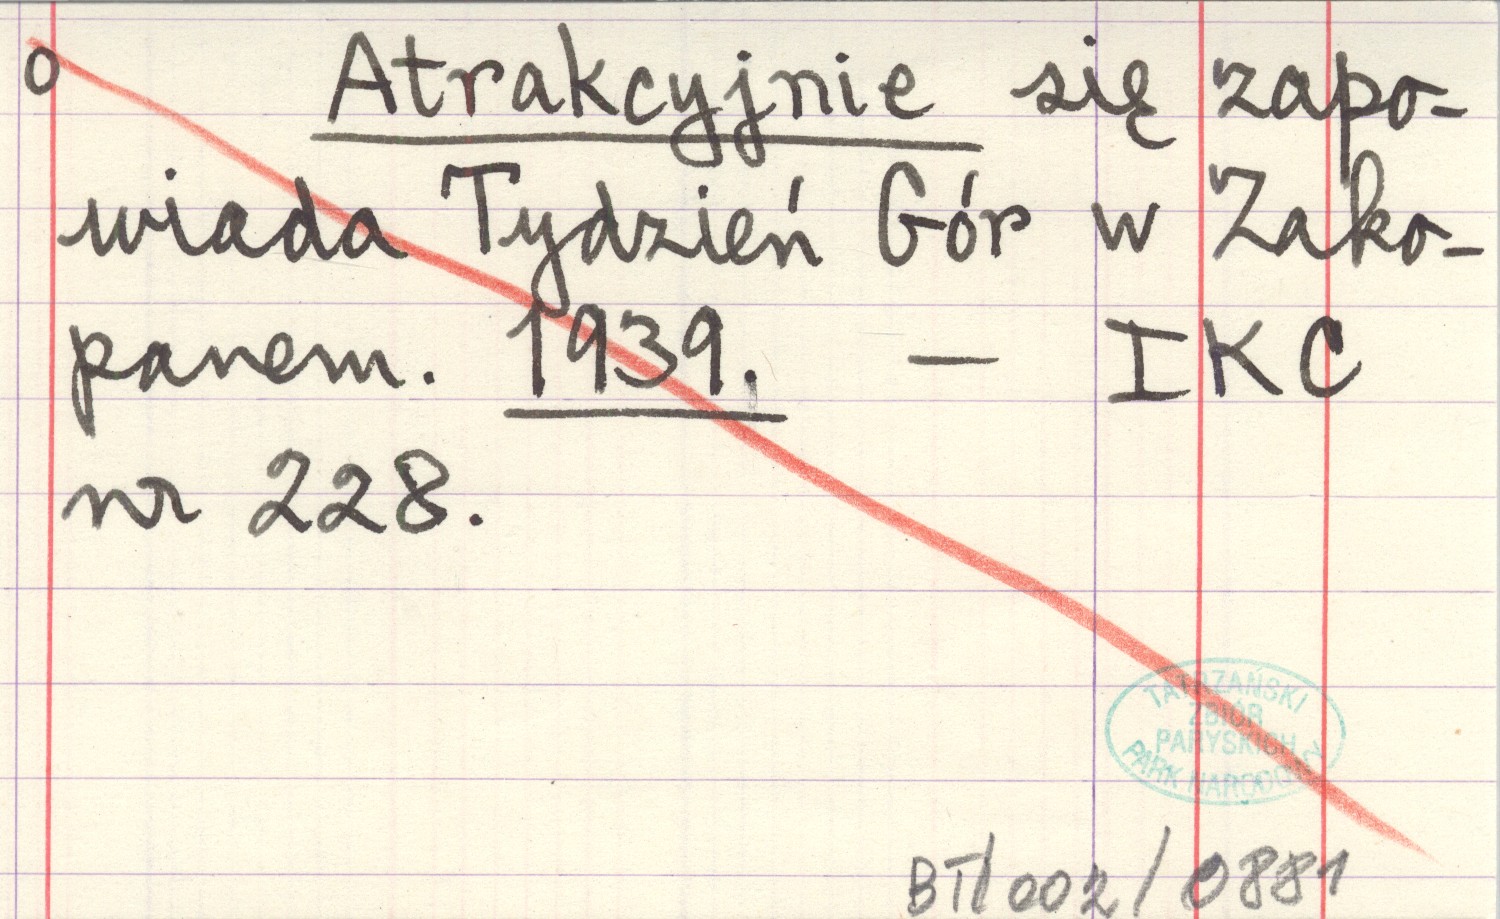 o Atrakcyjnie się zapo-
wiada Tydzień Gór w Zako-
panem. 1939. — IKC
nr 228.
TATRZAŃSKI
ZBIÓR
PARYSKICH
PARK NARODOWY
BT/002/0881